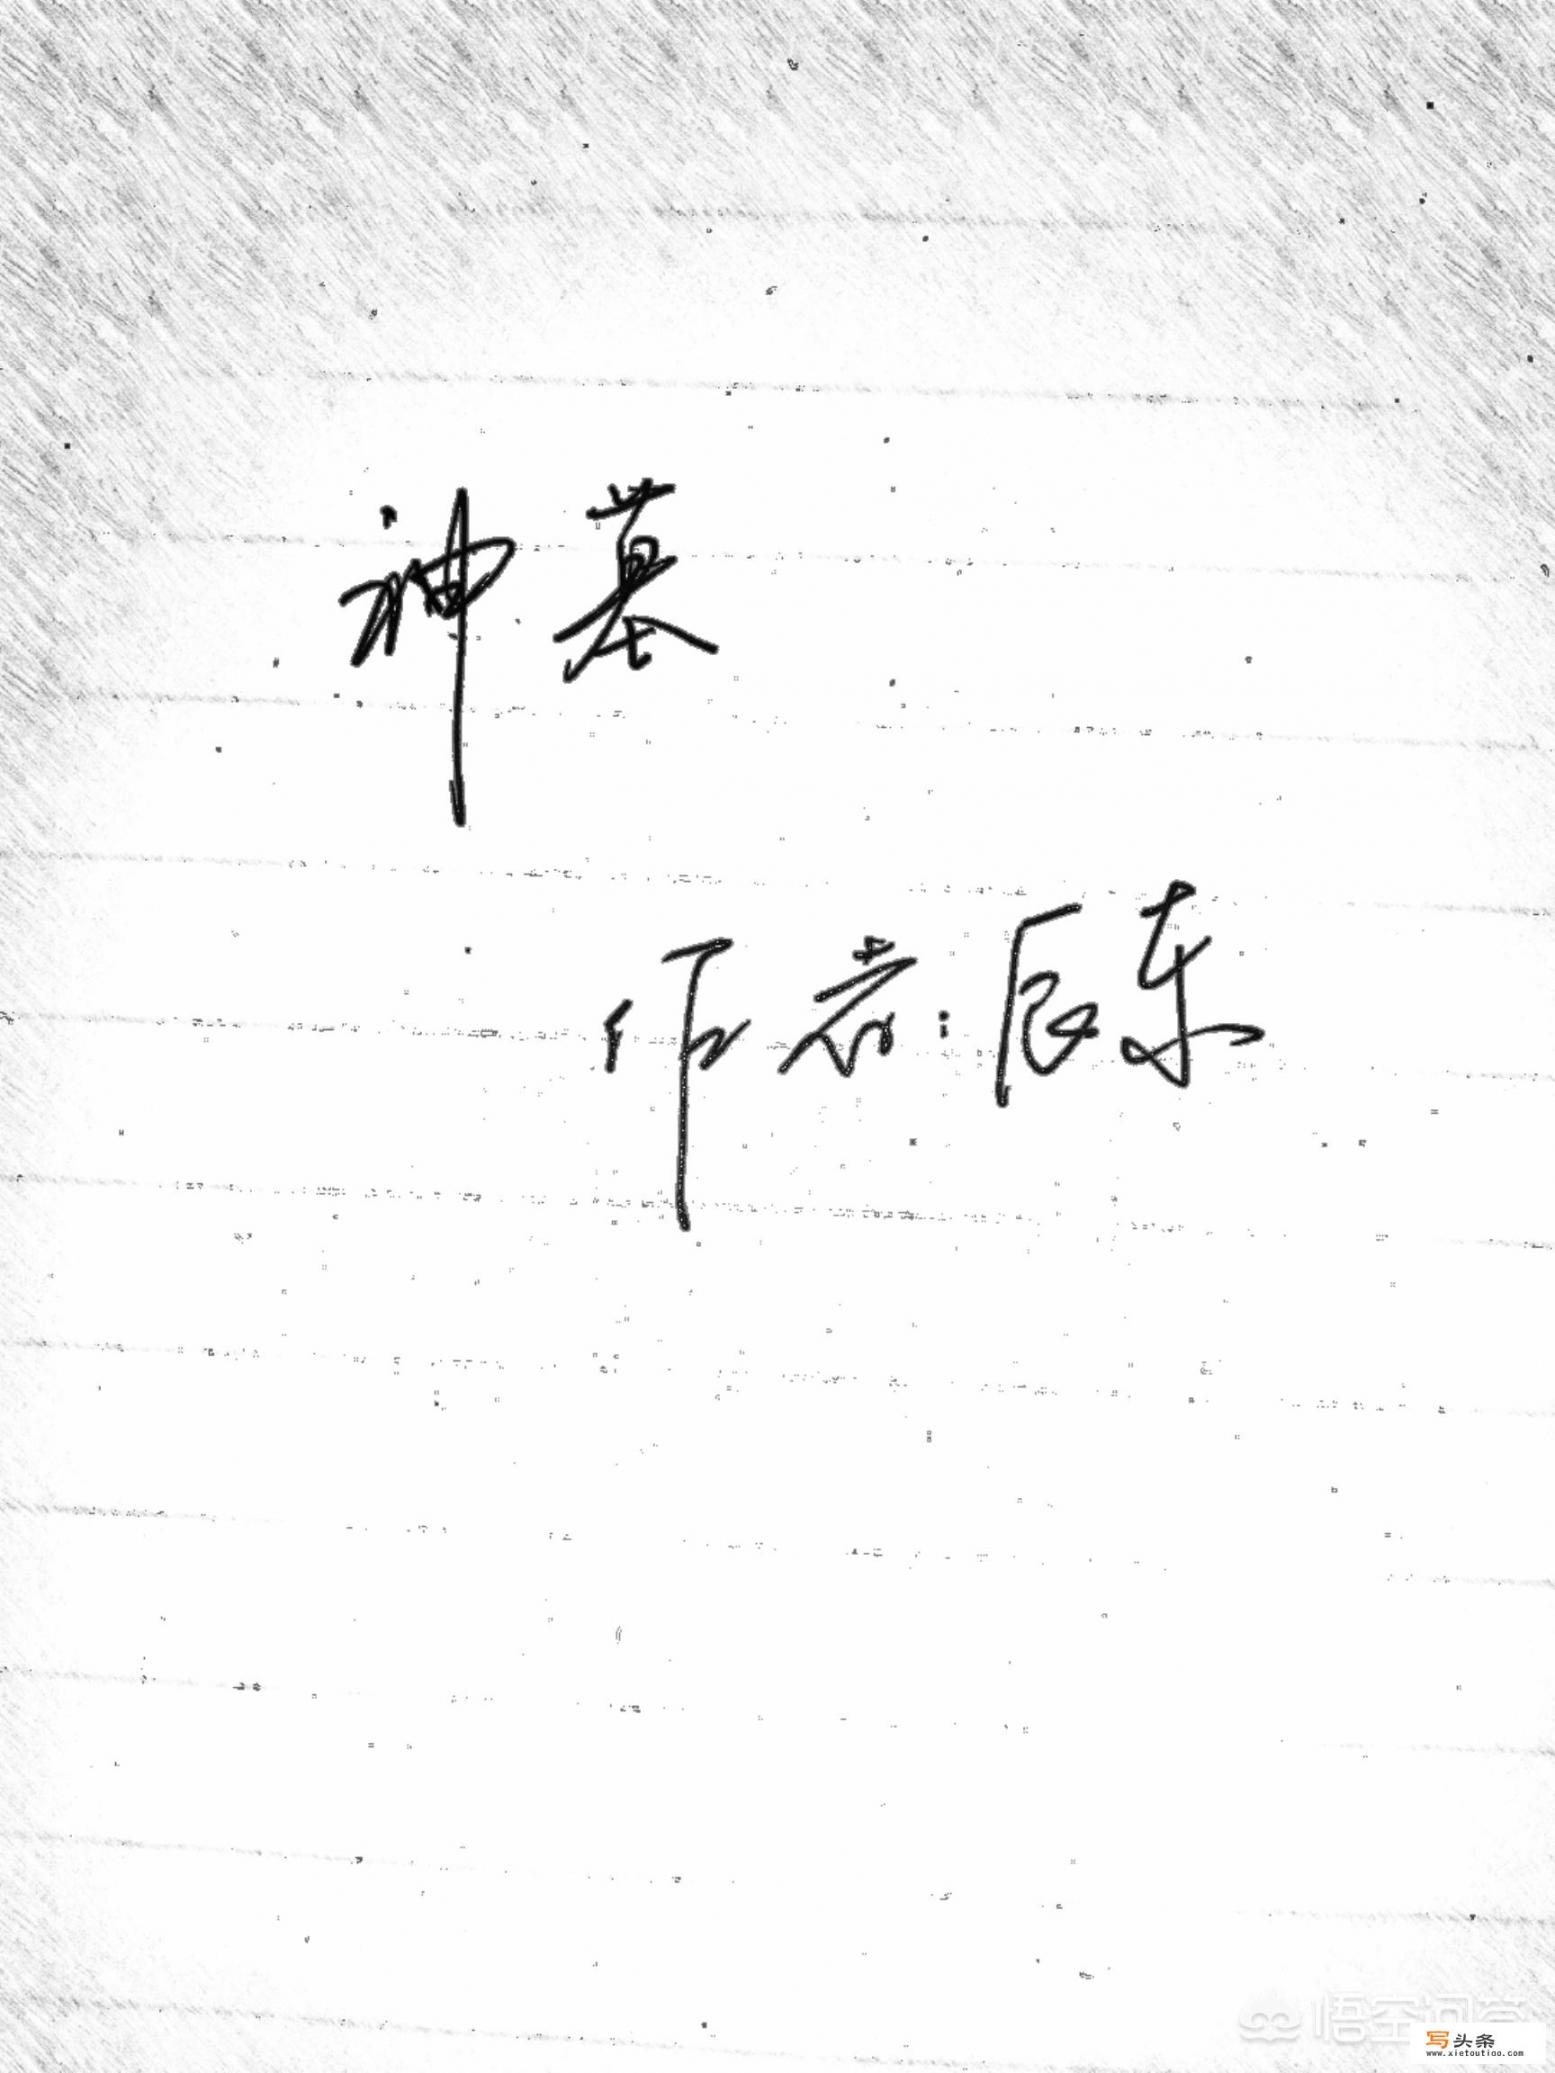 神墓
作者:辰东
悟空问答
写头条
www.xietoutiao.com